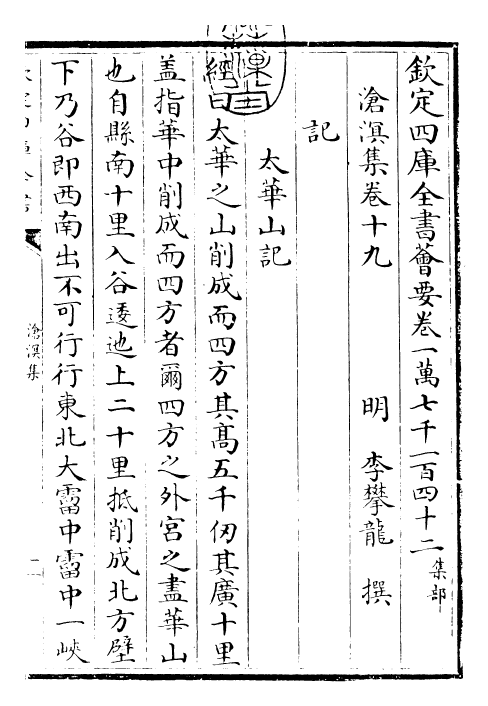 欽定四庫全書薈要卷一萬七千一百四十二 集部
滄溟集卷十九　明　李攀龍　撰
記
太華山記
經曰太華之山削成而四方其髙五千仞其廣十里
盖指華中削成而四方者爾四方之外宮之盡華山
也自縣南十里入谷逶迆上二十里抵削成北方壁
下乃谷即西南出不可行行東北大霤中霤中一峽
滄溟集